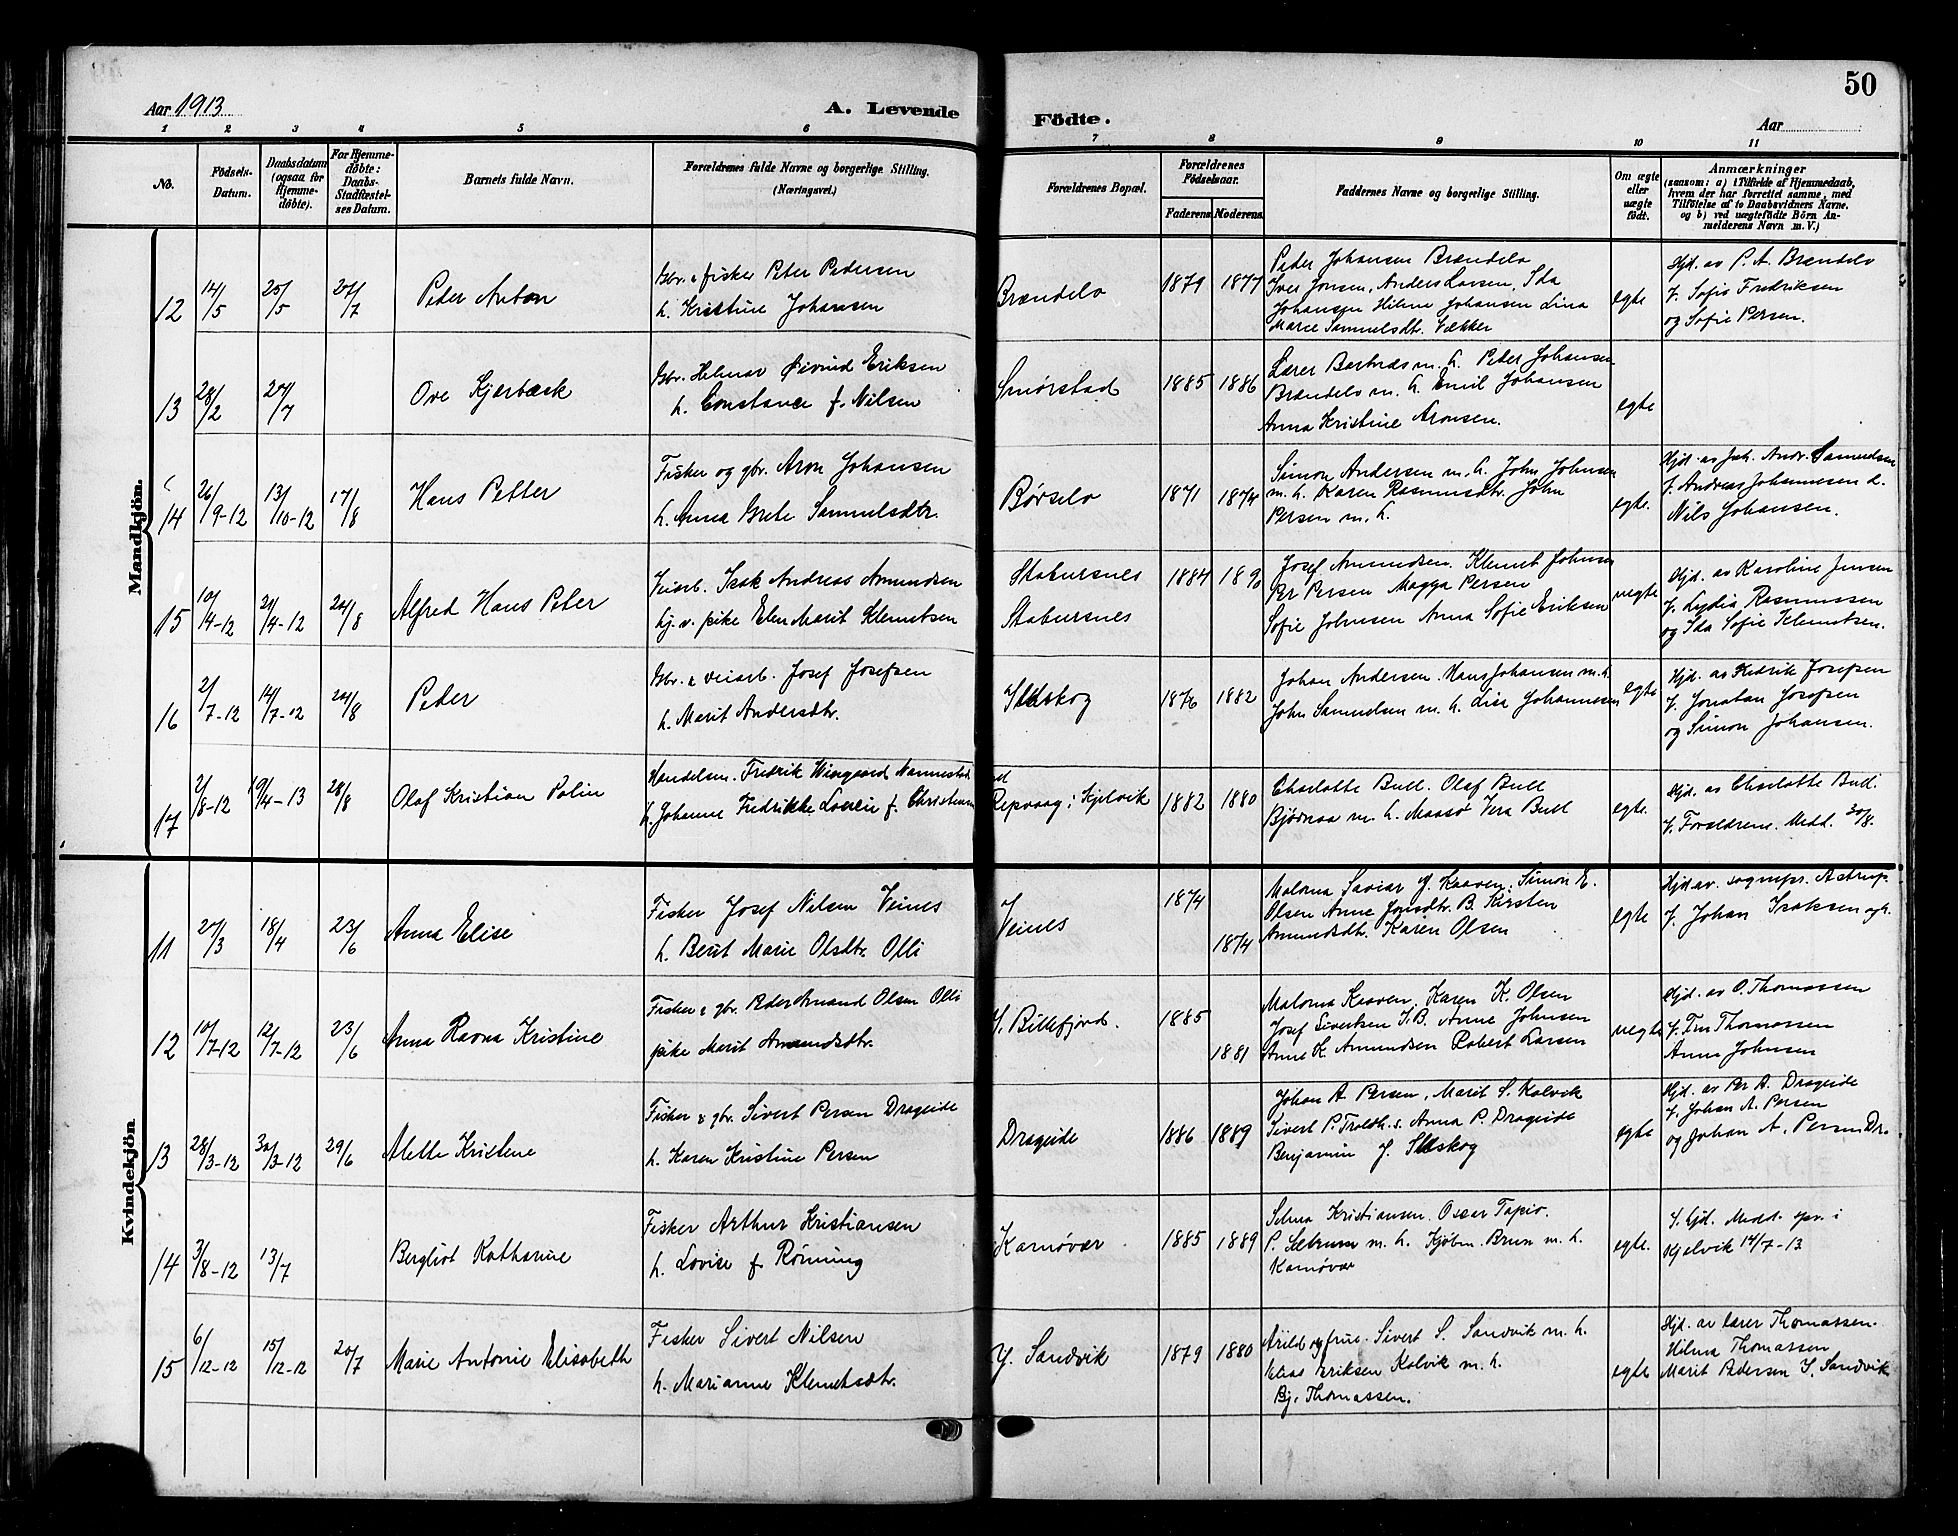 50
Aar 1913
A. Levende
Födte.
Aar
1 2 3 4 5 6 7 8 9 10 11
No.
Födsels-Datum.
Daabsdatum (ogsaa for Hjemme-döbte).
For Hjemme-döbte: Daabs-Stadfæstel-ses Datum.
Barnets fulde Navn.
Forældrenes fulde Navne og borgerlige Stilling.
(Næringsvei.)
Forældrenes Bopæl.
Forældrenes Födselsaar.
Faderens. Moderens.
Faddernes Navne og borgerlige Stilling.
Om ægte eller uægte födt.
Anmærkninger
(saasom: a) i Tilfælde af Hjemmedaab,
hvem der har forrettet samme, med
Tilföielse af to Daabsvidners Navne.
og b) ved uægtefödte Börn An-
melderens Navn m. V.)
Mandkjön.
12 14/5 25/5 27/7 Peter Anton
Gbr. & fisker Peter Pedersen
h. Kristine Johansen
Brændelv 1879 1877
Peder Johansen Brændelv
Iver Jonsen, Anders Larsen, Ida
Johansen Hilma Johansen Lina
Marie Samuelsdtr. Vækker
egte
Hjd. av P. A. Brændelv
V. Sofie Fredriksen
og Sofie Persen.
13 28/2 27/7 Ove Kjerbæck
Gbr. Helmar Øivind Eriksen
h. Constance f. Nilsen
Smørstad 1885 1886
Lærer Bertnæs m. h. Peder Johansen
Brændelv m. h. Emil Johansen
Anna Kristine Aronsen.
egte
14 26/9-12 13/10-12 17/8 Hans Petter
Fisker og gbr. Aron Johansen
h. Anna Grete Samuelsdtr.
Børselv 1871 1874
Simon Andersen m. h. John Johnsen
m. h. Karen Rasmusdtr. John
Persen m. h.
egte.
Hjd. av Joh. Andr. Samuelsen
V. Andreas Johannesen &
Nils Johansen.
15 10/4-12 21/4-12 24/8 Alfred Hans Peter
Veiarb. Isak Andreas Amundsen
hj. v. pike Elen Marit Klemetsen
Stabursnes
Stabursnes
1884 1890
Josef Amundsen. Klemet Johnsen
Per Persen Magga Persen
Sofie Johnsen Anna Sofie Eriksen
uegte
Hjd. av Karoline Jensen
V. Lydia Rasmussen
og Ida Sofie Klemetsen.
16 2/7-12 14/7-12 24/8 Peder
Gbr. & veiarb. Josef Josefsen
h. Marit Andersdtr.
Ildskog 1876 1882
Johan Andersen. Hans Johansen m. h.
John Samuelsen m. h. Lise Johannessen
egte
Hjd. av Fredrik Josefsen
V. Jonatan Josefsen
og Simon Johansen.
17 2/8-12 19/4-13 28/8 Olaf Kristian Palin
Handelsm. Fredrik Wingaard Nannestad
h. Johanne Fredrikke Lovise f. Christensen
Repvaag i Kjelvik 1882 1880
Charlotte Bull. Olaf Bull
Bjørnaa m. h. Maasø Vera Bull
egte.
Hjd. av Charlotte Bull.
V. Forældrene. Medd. 30/8.
Kvindekjön
11 27/3 18/4 23/6 Anna Elise
Fisker Josef Nilsen Veines
h. Berit Marie Olsdtr. Olli
Veines 1874 1874
Malona Saviar Y. Kaaven, Simon E.
Olsen Anne Jonsdtr. B. Kirsten
Amundsdtr. Karen Olsen
egte
Hjd av. sognepr. Astrup.
V. Johan Isaksen og h.
12 10/7-12 12/7-12 23/6 Anna Ravna Kristine
Fisker & gbr. Peder Amand Olsen Olli
pike Marit Amundsdtr.
Y. Billefjord. 1885 1881
Malona Kaaven, Karen K. Olsen
Josef Sivertsen I.B. Anne Johnsen
Anne K. Amundsen Robert Larsen
uegte
Hjd. av O. Thomassen
V. Trn Thomassen
Anna Johnsen
13 28/3-12 30/3-12 29/6 Mette Kristine
Fisker & gbr. Sivert Persen Drageide
h. Karen Kristine Persen
Drageide 1886 1889
Johan A. Persen, Marit S. Kolvik
Sivert P. Troldh. s. Anna P. Drageide
Benjamin J. Ildskog
egte
Hjd. av Per A. Drageide
V. Johan A. Persen
og Johan A. Persen Dr.
14 3/8-12 13/7 Bergliot Katharine
Fisker Arthur Kristiansen
h. Lovise f. Rönning
Kamøvær 1885 1889
Selma Kristiansen. Oscar Tapio.
P. Sætrum m. h. Kjøbm. Brun m. h.
Kamøvær
egte.
I. hjd. Medd. spr. i
Kjelvik 14/7-13
15 6/12-12 15/12-12 20/7 Marie Antonie Elisabeth
Fisker Sivert Nilsen
h. Marianne Klemetsdtr.
Y. Sandvik 1879 1880
Arild og frue. Sivert S. Sandvik m. h.
Elias Eriksen Kolvik m. h.
Bj. Thomassen.
egte
Hjd. av lærer Thomassen.
Hilma Thomassen
Marit Pedersen Y. Sandvik